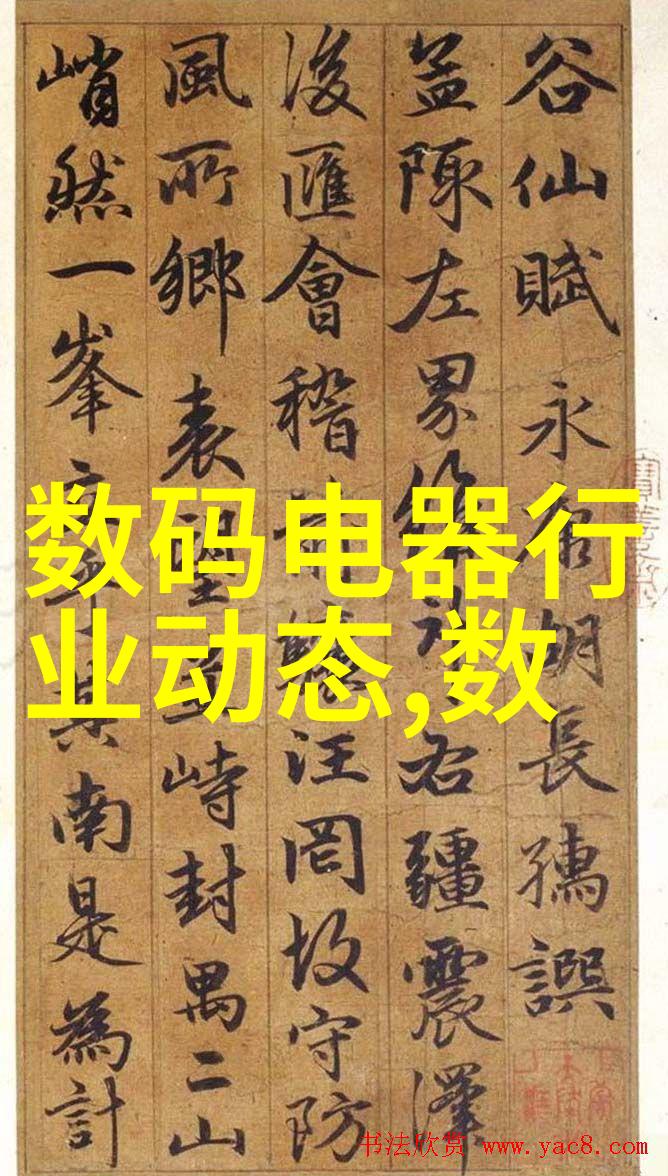 谷仙賦 永康胡長孺譔
左界右疆震澤
後匯會稽汪罔故守防
風所鄉表望並峙封禺二山
峭然一峯其南是為計
数码电器行
业动态,数
书法欣赏 www.yac8.com